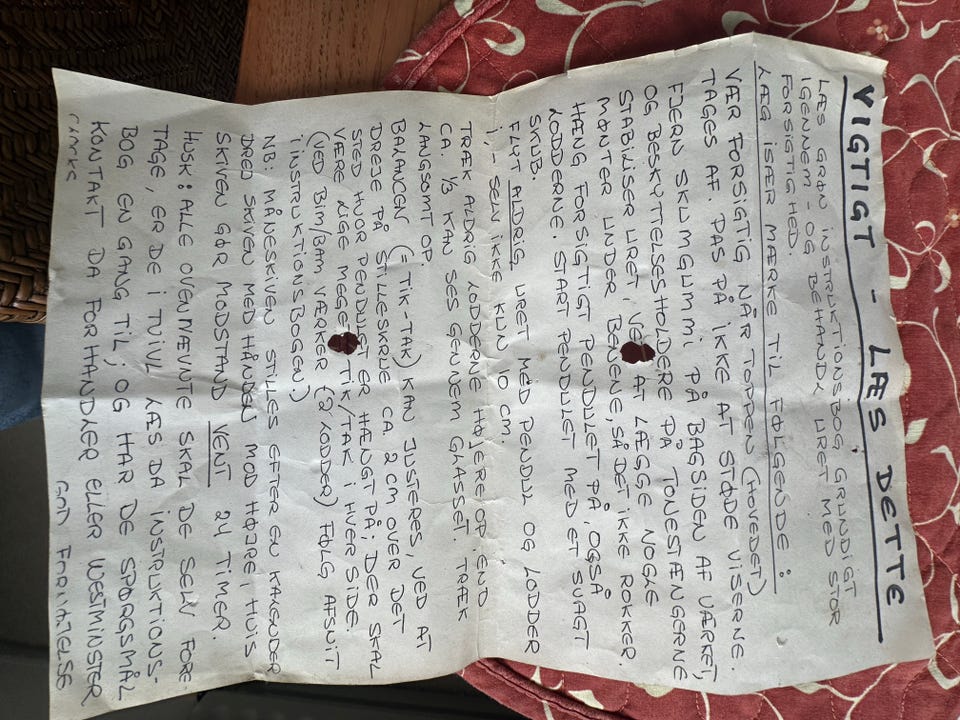 VIGTIGT - LÆS DETTE
LÆS GRØN INSTRUKTIONSBOG GRUNDIGT
IGENNEM - OG BEHANDL URET MED STOR
FORSIGTIGHED.
LÆG ISÆR MÆRKE TIL FØLGENDE:
VÆR FORSIGTIG NÅR TOPPEN (HOVEDET)
TAGES AF. PAS PÅ IKKE AT STØDE VISERNE.
FJERN SKUMGUMMI PÅ BAGSIDEN AF VÆRKET,
OG BESKYTTELSESHOLDERE PÅ TONESTÆNGERNE
STABILISER URET, VED AT LÆGGE NOGLE
MØNTER UNDER BENENE, SÅ DET IKKE ROKKER.
HÆNG FORSIGTIGT PENDULET PÅ, OGSÅ
LODDERNE. START PENDULET MED ET SVAGT
SKUB.
FLYT ALDRIG URET MED PENDUL OG LODDER
I, - SELV IKKE KUN 10 CM.
TRÆK ALDRIG LODDERNE HØJERE OP, END
CA. 1/3 KAN SES GENNEM GLASSET. TRÆK
LANGSOMT OP.
BALANCEN (= TIK-TAK) KAN JUSTERES, VED AT
DREJE PÅ STILLESKRUE CA. 2 CM OVER DET
STED HVOR PENDULET ER HÆNGT PÅ; DER SKAL
VÆRE LIGE MEGET TIK/TAK I HVER SIDE.
(VED BIM/BAM VÆRKER (2 LODDER) FØLG AFSNIT
I INSTRUKTIONSBOGEN)
NB: MÅNESKIVEN STILLES EFTER EN KALENDER
DREJ SKIVEN MED HÅNDEN MOD HØJRE, HVIS
SKIVEN GØR MODSTAND VENT 24 TIMER.
HUSK: ALLE OVENNÆVNTE SKAL DE SELV FORE-
TAGE, ER DE I TVIVL LÆS DA INSTRUKTIONS-
BOG EN GANG TIL, OG HAR DE SPØRGSMÅL
KONTAKT DA FORHANDLER ELLER WESTMINSTER
CLOCKS GOD FORNØJELSE